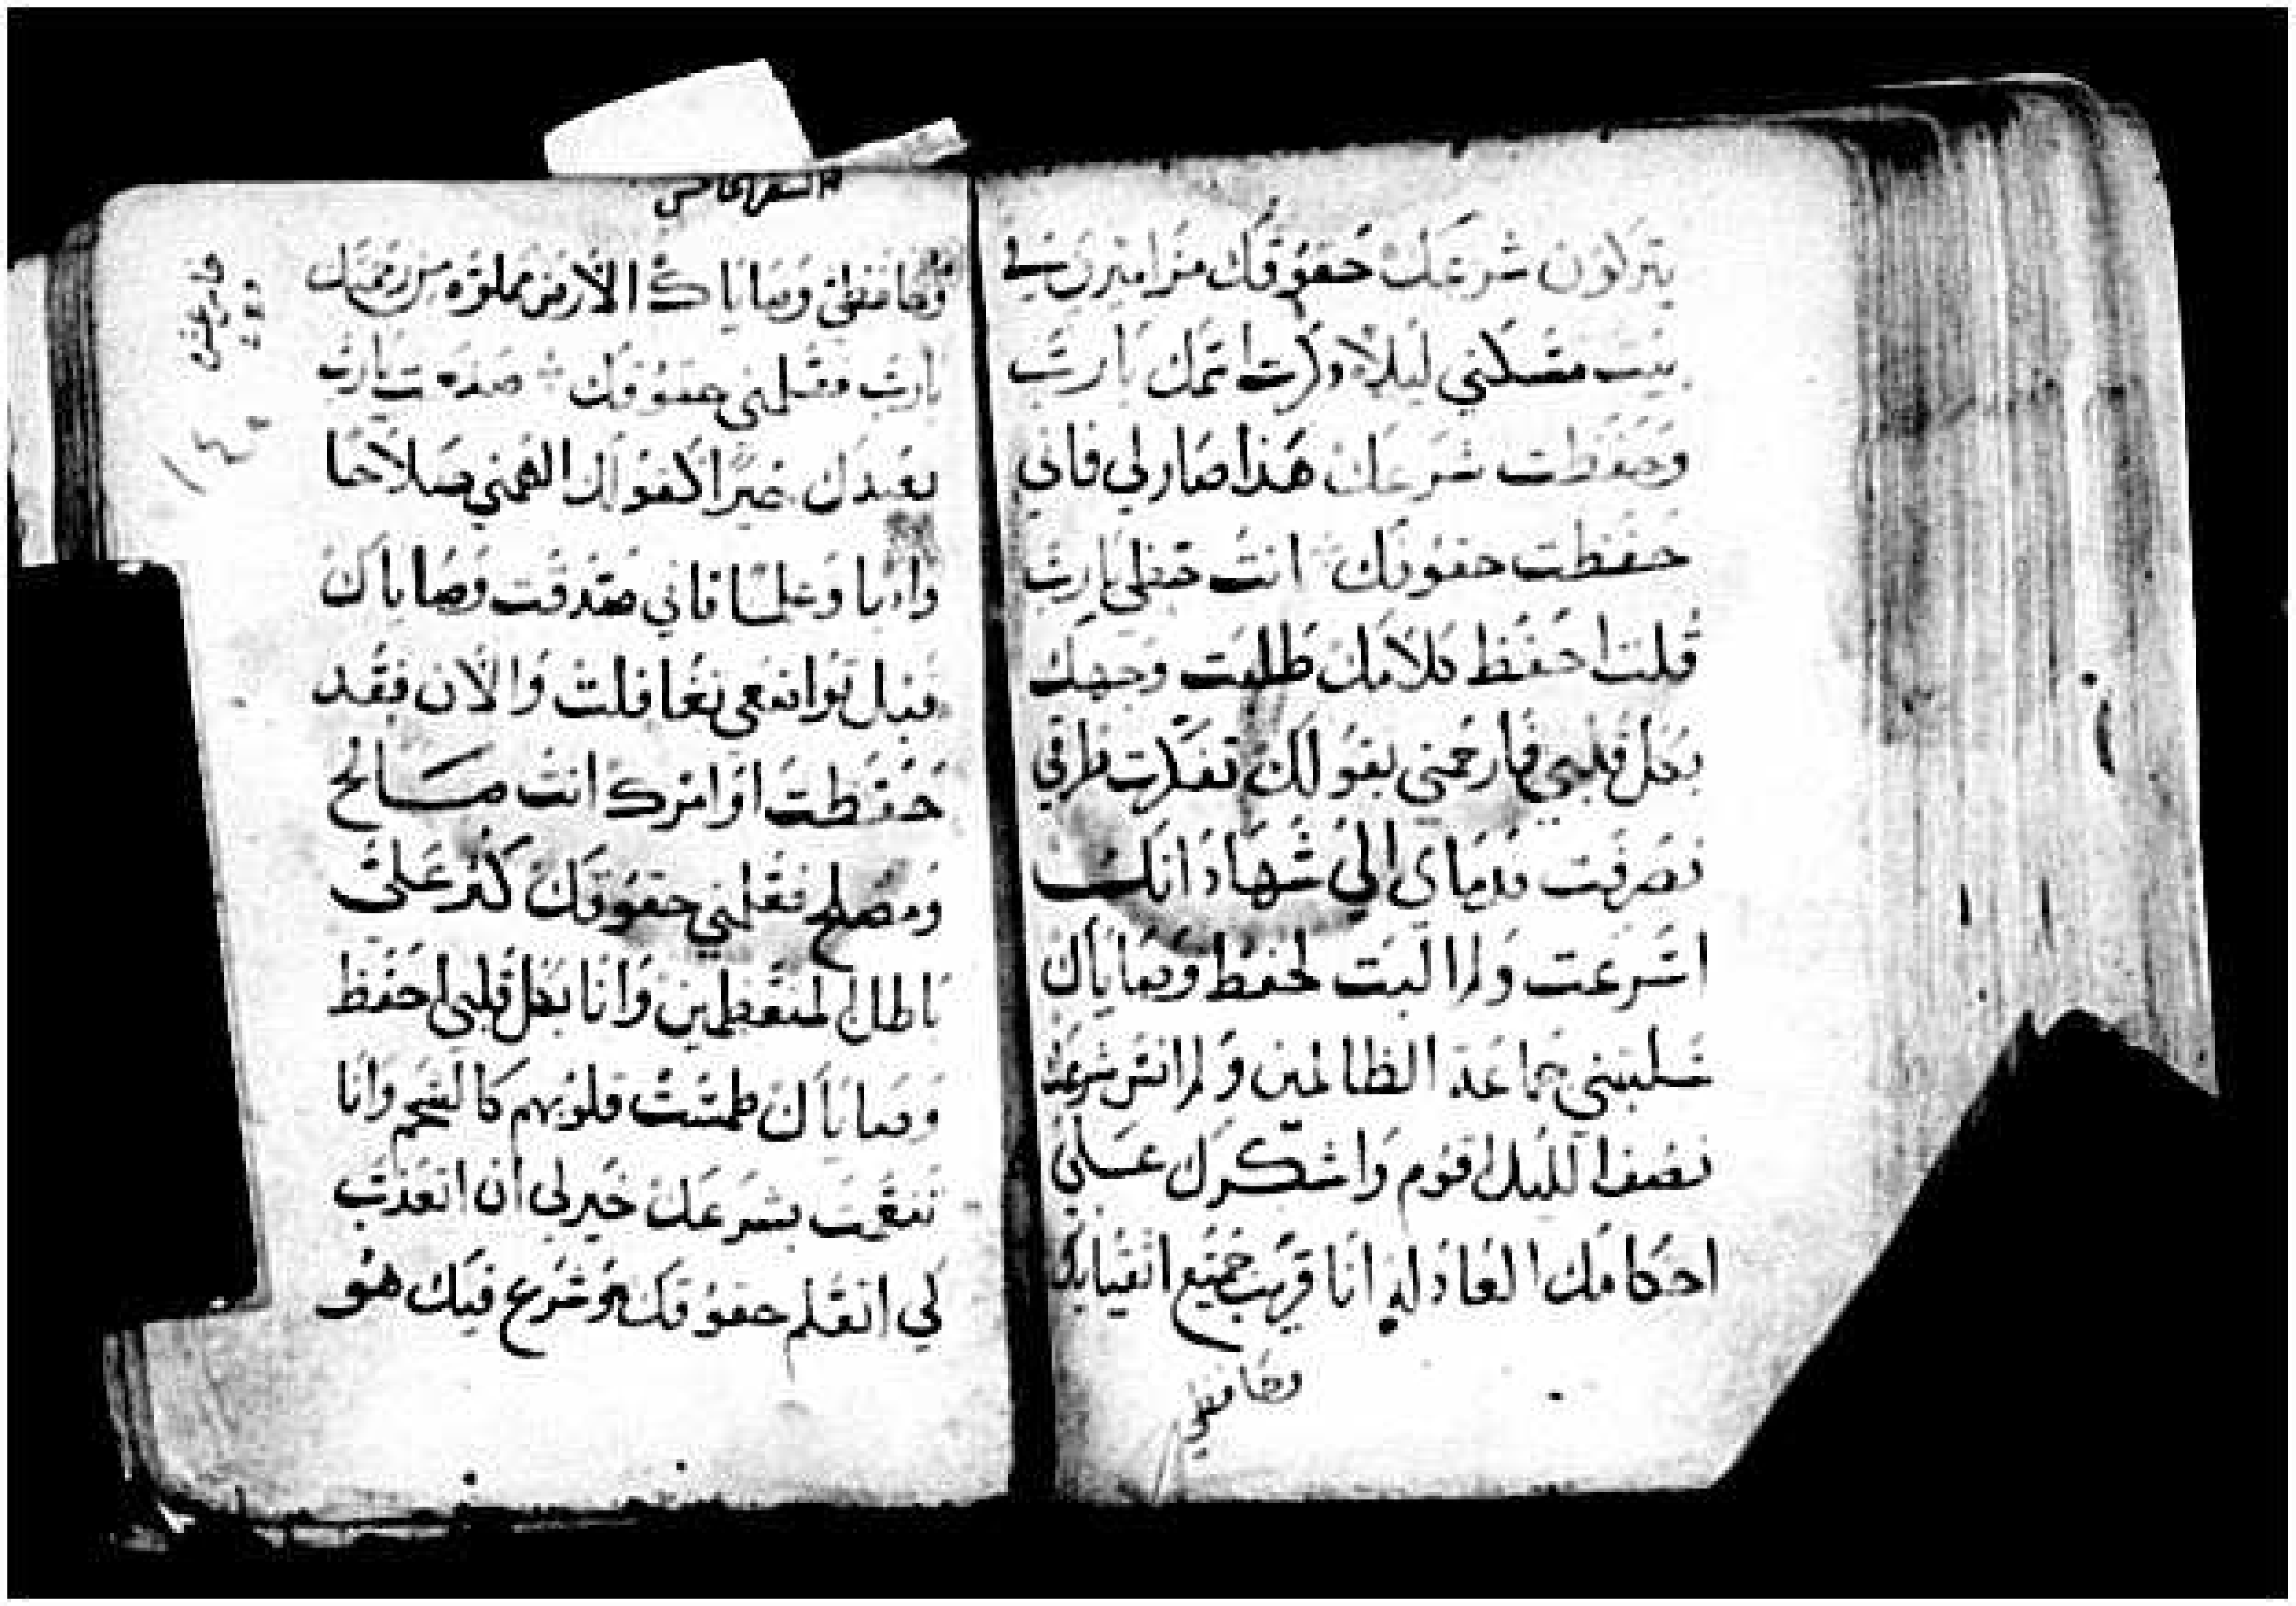 يتركون شرعك حقوقك مزاميري في
بيت مسكني ليلا ذكرت اسمك يا رب
وحفظت شرعك هذا صار لي فاني
حفظت حقوقك انت حظي يا رب
قلت احفظ كلامك طلبت وجهك
بكل قلبي فارحمني بقولك تفكرت طرقي
فصرفت قدماي الي شهاداتك
اسرعت ولم البت لحفظ وصاياك
جماعة الظالمين ولم انس شرعك
نصف الليل اقوم واشكرك علي
احكامك العادله انا قريب جميع اتقيايك
وحافظي
وحافظي وصاياك الارض مملوه من رحمتك
يارب فعلمني حقوقك صنعت يارب
بعبدك خيرا كقولك الهمني صلاحا
وادبا وعلما فاني صدقت وصاياك
قبل تواضعي تغافلت والان فقد
حفظت اوامرك انت صالح
ومصلح فعلمني حقوقك كثر علي
وانا بكل قلبي احفظ
وصاياك قلوبهم كالشحم وانا
بشرعك خير لي ان
لكي اتعلم حقوقك شرع فيك هو